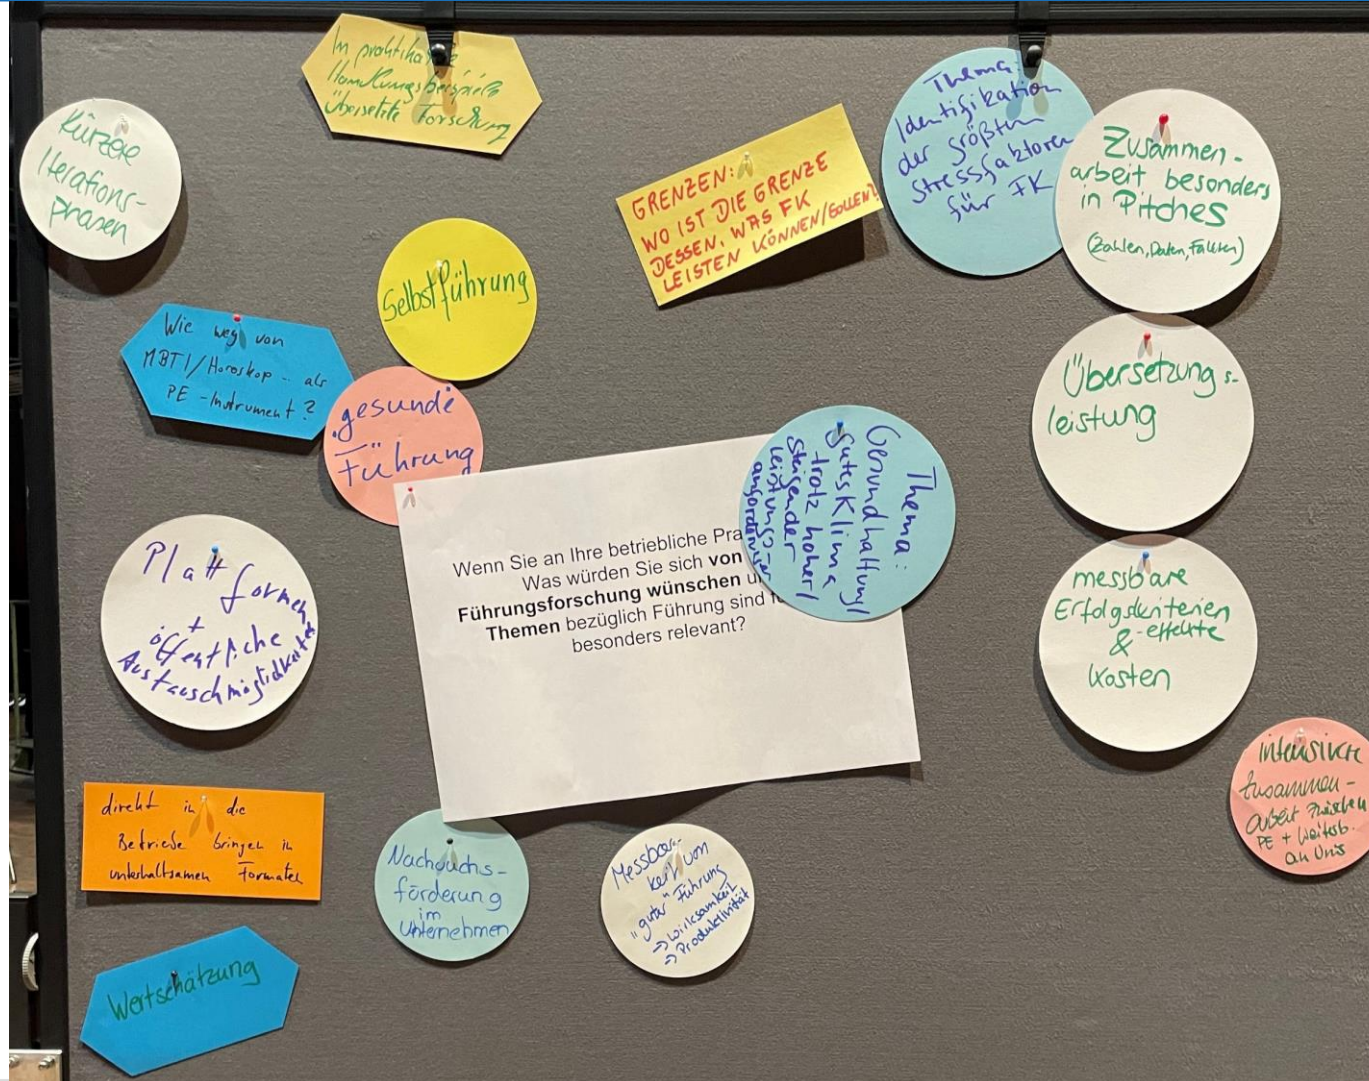 In praktikable
Handlungsbeispiele
übersetzte Forschung
Kürzere
Iterations-
phasen
GRENZEN:
WO IST DIE GRENZE
DESSEN, WAS FK
LEISTEN KÖNNEN/SOLLEN?
Thema:
Identifikation
der größten
Stressfaktoren
für FK
Zusammen-
arbeit besonders
in Pitches
(Zahlen, Daten, Fakten)
Selbstführung
Wie weg von
MBTI/Horoskop .. als
PE-Instrument?
"gesunde"
Führung
Übersetzungs-
leistung
Wenn Sie an Ihre betriebliche Pra
Was würden Sie sich von
Führungsforschung wünschen u
Themen bezüglich Führung sind f
besonders relevant?
Thema:
Gesundhaltung/
gutes Klima
trotz hoher/
steigender
Leistungs-
anforderungen
Plattformen
+
öffentliche
Austauschmöglichkeiten
messbare
Erfolgskriterien
& -effekte
Kosten
intensivere
Zusammen-
arbeit zwischen
PE + Weiterb.
an Unis
direkt in die
Betriebe bringen in
unterhaltsamen Formaten
Nachwuchs-
förderung
im
Unternehmen
Messbar-
keit von
"guter" Führung
-> Wirksamkeit
-> Produktivität
Wertschätzung